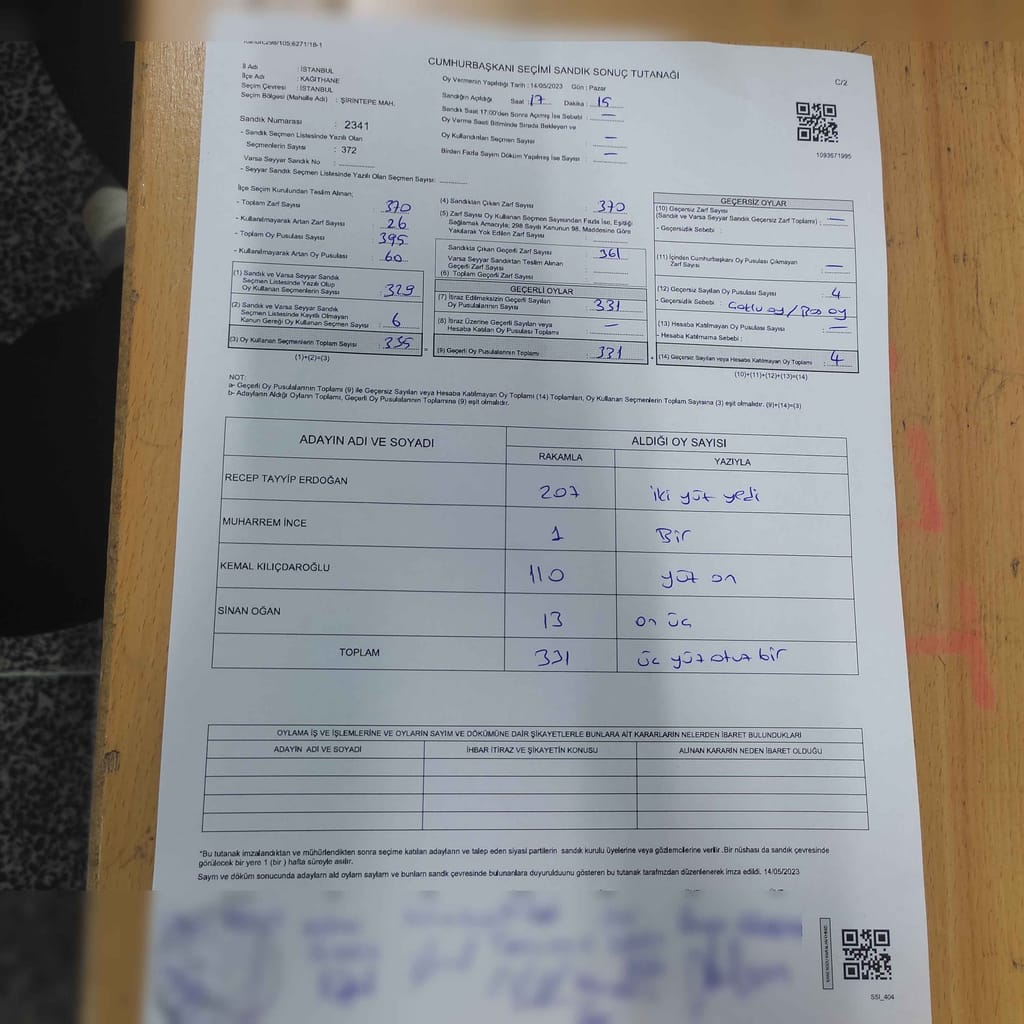 CUMHURBAŞKANI SEÇİMİ SANDIK SONUÇ TUTANAĞI
C/2
İl Adı : İSTANBUL
İlçe Adı : KAĞITHANE
Seçim Çevresi : İSTANBUL
Seçim Bölgesi (Mahalle Adı) : ŞİRİNTEPE MAH.
Sandık Numarası : 2341
- Sandık Seçmen Listesinde Yazılı Olan
Seçmenlerin Sayısı : 372
Varsa Seyyar Sandık No :
- Seyyar Sandık Seçmen Listesinde Yazılı Olan Seçmen Sayısı:
Oy Vermenin Yapıldığı Tarih : 14/05/2023 Gün : Pazar
Sandığın Açıldığı Saat : 17 Dakika : 15
Sandık Saat 17:00'den Sonra Açılmış İse Sebebi : —
Oy Verme Saati Bitiminde Sırada Bekleyen ve
Oy Kullandırılan Seçmen Sayısı : —
Birden Fazla Sayım Döküm Yapılmış İse Sayısı : —
1093671995
İlçe Seçim Kurulundan Teslim Alınan;
- Toplam Zarf Sayısı : 370
- Kullanılmayarak Artan Zarf Sayısı : 26
- Toplam Oy Pusulası Sayısı : 395
- Kullanılmayarak Artan Oy Pusulası : 60
(1) Sandık ve Varsa Seyyar Sandık
Seçmen Listesinde Yazılı Olup
Oy Kullanan Seçmenlerin Sayısı : 329
(2) Sandık ve Varsa Seyyar Sandık
Seçmen Listesinde Kayıtlı Olmayan
Kanun Gereği Oy Kullanan Seçmen Sayısı : 6
(3) Oy Kullanan Seçmenlerin Toplam Sayısı : 335
(1)+(2)=(3)
(4) Sandıktan Çıkan Zarf Sayısı : 370
(5) Zarf Sayısı Oy Kullanan Seçmen Sayısından Fazla İse, Eşitliği
Sağlamak Amacıyla; 298 Sayılı Kanunun 98. Maddesine Göre
Yakılarak Yok Edilen Zarf Sayısı :
Sandıkta Çıkan Geçerli Zarf Sayısı : 361
Varsa Seyyar Sandıktan Teslim Alınan
Geçerli Zarf Sayısı :
(6) Toplam Geçerli Zarf Sayısı :
GEÇERLİ OYLAR
(7) İtiraz Edilmeksizin Geçerli Sayılan
Oy Pusulalarının Sayısı : 331
(8) İtiraz Üzerine Geçerli Sayılan veya
Hesaba Katılan Oy Pusulası Toplamı : —
(9) Geçerli Oy Pusulalarının Toplamı : 331
GEÇERSİZ OYLAR
(10) Geçersiz Zarf Sayısı
(Sandık ve Varsa Seyyar Sandık Geçersiz Zarf Toplamı) : —
- Geçersizlik Sebebi :
(11) İçinden Cumhurbaşkanı Oy Pusulası Çıkmayan
Zarf Sayısı : —
(12) Geçersiz Sayılan Oy Pusulası Sayısı : 4
- Geçersizlik Sebebi : Çoklu oy / Boş oy
(13) Hesaba Katılmayan Oy Pusulası Sayısı : —
- Hesaba Katılmama Sebebi :
(14) Geçersiz Sayılan veya Hesaba Katılmayan Oy Toplamı : 4
(10)+(11)+(12)+(13)=(14)
NOT:
a- Geçerli Oy Pusulalarının Toplamı (9) ile Geçersiz Sayılan veya Hesaba Katılmayan Oy Toplamı (14) Toplamları, Oy Kullanan Seçmenlerin Toplam Sayısına (3) eşit olmalıdır. (9)+(14)=(3)
b- Adayların Aldığı Oyların Toplamı, Geçerli Oy Pusulalarının Toplamına (9) eşit olmalıdır.
ADAYIN ADI VE SOYADI
ALDIĞI OY SAYISI
RAKAMLA YAZIYLA
RECEP TAYYİP ERDOĞAN 207 iki yüz yedi
MUHARREM İNCE 1 Bir
KEMAL KILIÇDAROĞLU 110 yüz on
SİNAN OĞAN 13 on üç
TOPLAM 331 üç yüz otuz bir
OYLAMA İŞ VE İŞLEMLERİNE VE OYLARIN SAYIM VE DÖKÜMÜNE DAİR ŞİKAYETLERLE BUNLARA AİT KARARLARIN NELERDEN İBARET BULUNDUKLARI
ADAYIN ADI VE SOYADI İHBAR İTİRAZ VE ŞİKAYETİN KONUSU ALINAN KARARIN NEDEN İBARET OLDUĞU
*Bu tutanak imzalandıktan ve mühürlendikten sonra seçime katılan adayların ve talep eden siyasi partilerin sandık kurulu üyelerine veya gözlemcilerine verilir. Bir nüshası da sandık çevresinde
görülecek bir yere 1 (bir) hafta süreyle asılır.
Sayım ve döküm sonucunda adayların aldı oyların sayların ve bunların sandık çevresinde bulunanlara duyurulduunu gösteren bu tutanak tarafımzdan düzenlenerek imza edildi. 14/05/2023
SSI_404